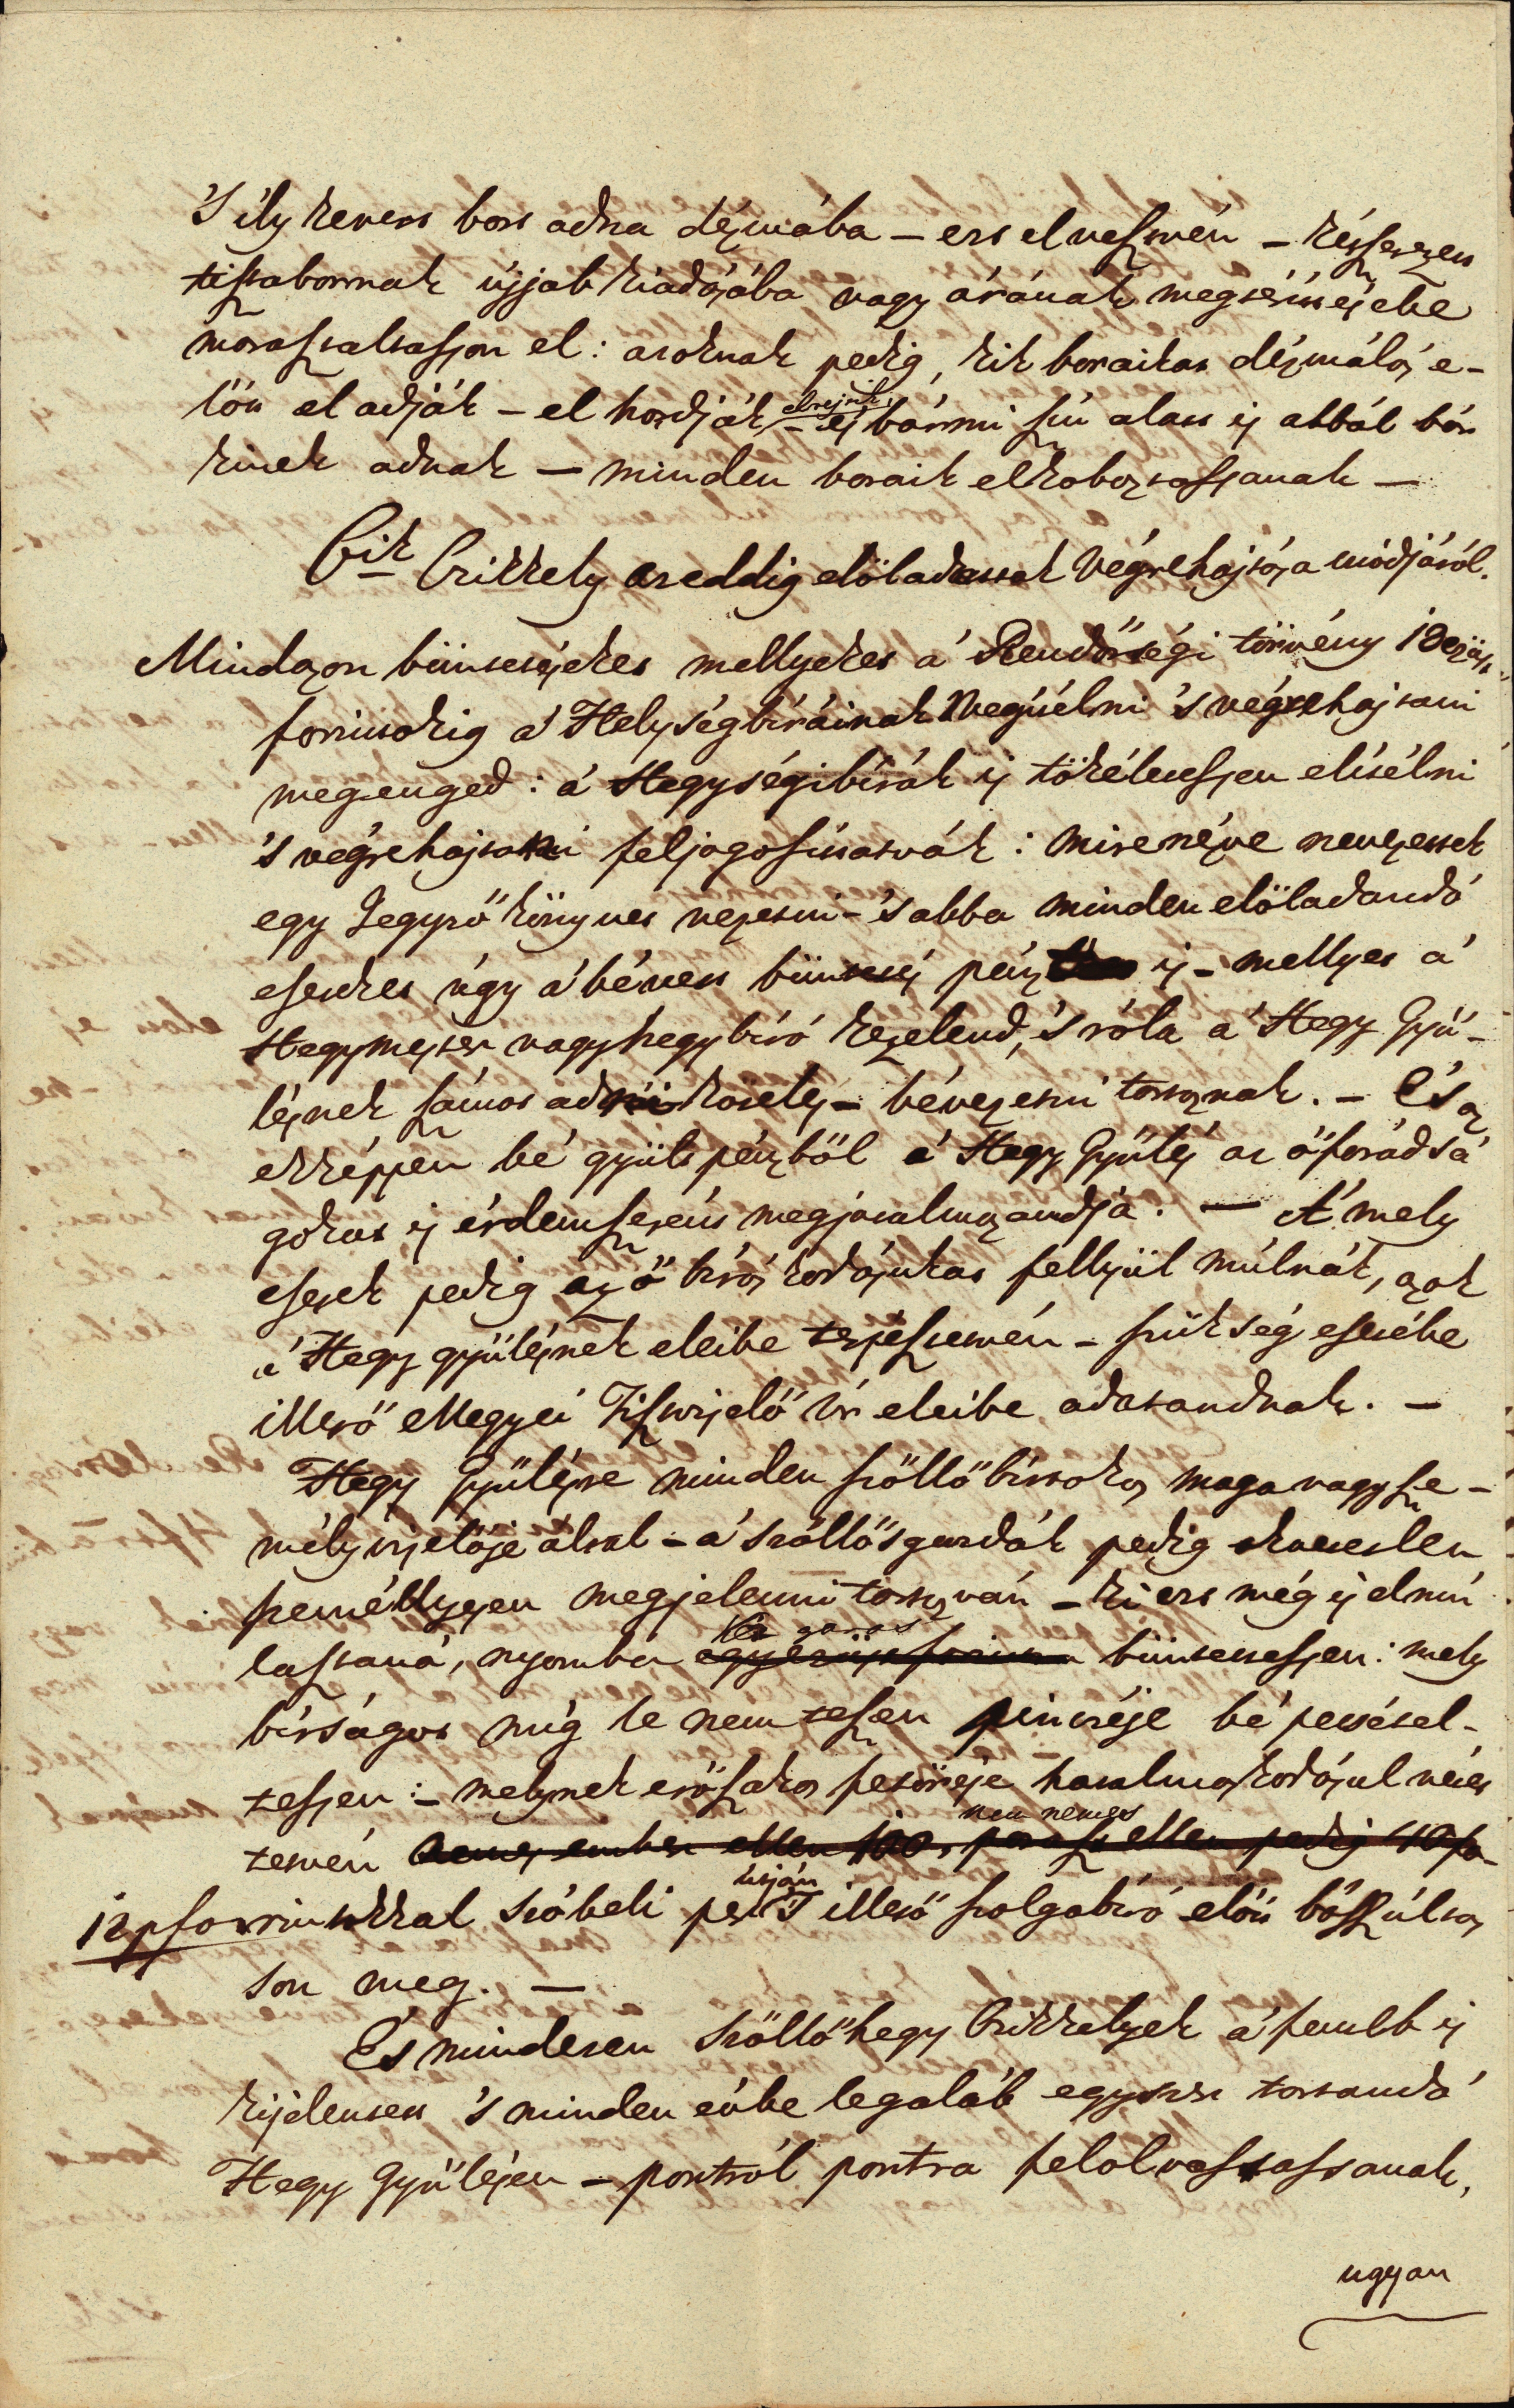 'S ily kevert bort adna dézmába – ezt elvesztvén – készerezen
tisztabornak újjab kiadására vagy árának megterittésébe
marasztaltasson el: azoknak pedig, kik boraikat dézmálás e-
lött el adják – el hordják – elrejtik, és bármi szín alatt is abbál bár
kinek adnak – minden boraik elkoboztassanak –
6ik Czikkely az eddig elöladattak Végrehajtása módjáról.
Mindazon büntetéseket mellyeket á Rendőrségi törvény 12 ezüst
forintokig á Helység biráinak Megitélni 's végrehajtani
megenged: á Hegységi birák is tökélletessen elitélni
's végrehajtani feljogosittatvák: mire nézve neveztettek
egy Jegyző könyvet vezetni – 's abba minden elöladandó
eseteket úgy á bévett büntetés pénzt is – mellyet á
Hegymester vagy hegybiró kezelend, 's róla á Hegy Gyü-
lésnek számot adni köteles – bévezetni tartoznak. – És az
ekképpen bé gyült pénzböl á Hegy Gyülés az ő fáradsá
gokat is érdemszerént megjutalmazandja. – A' mely
esetek pedig az ő biráskodásukat fellyül múlnák, azok
á Hegy gyülésnek eleibe terjesztetvén – szükség esetébe
illető Megyei Tisztviselő Úr eleibe adatandnak. –
Hegy Gyülésre minden szöllö birtokos maga vagy sze-
mélyviselöje által – á szöllösgazdák pedig okvetetlen
személlyessen megjelenni tartozván – ki ezt még is elmú
lasztaná, nyomba egy ezüst forintra Két garas büntettessen: mely
bírságot míg le nem teszen pinczéje bé petsétel-
tessen: – melynek erőszakos feltörése hatalmaskodásul véte-
tetvén nemes ember ellen 100, paraszt nem nemes ellen pedig 40 fo-
12 pforintokkal szóbeli per útján 'S illető szolgabiró elött bószúltas
son meg. –
És mindezen Szöllöhegy Czikkelyek á fentebb is
kijelentett 's minden évbe legaláb egyszer tartandó
Hegy Gyülésen – pontról pontra felolvastassanak,
ugyan